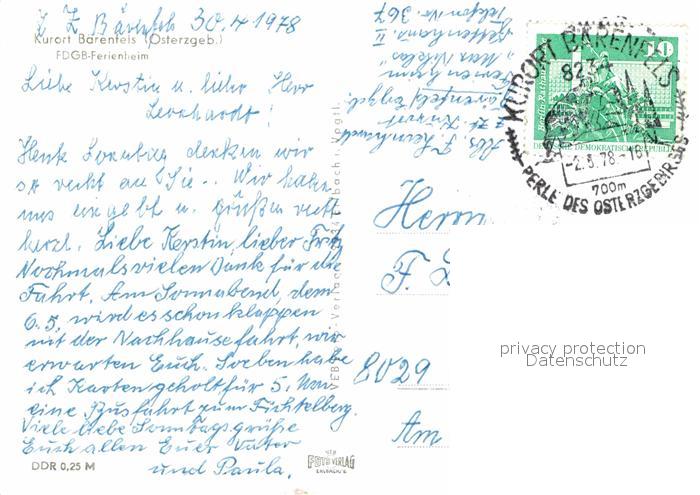 z Z Bärenfels 30.4 1978
Kurort Bärenfels (Osterzgeb.)
FDGB-Ferienheim
Liebe Kerstin u. lieber Herr
Leonhardt!
Heute Sonntag denken wir
so recht an Sie.. Wir haben
uns eingelebt u. grüßen recht
herzl. Liebe Kerstin, lieber Fritz
Nochmals vielen Dank für die
Fahrt. Am Sonnabend, dem
6. 5. wird es schon klappen
mit der Nachhausefahrt, wir
erwarten Euch. Soeben habe
ich Karten geholt für 5. Mai
eine Busfahrt zum Fichtelberg.
Viele liebe Sonntagsgrüße
Euch allen Euer Vater
und Paula.
DDR 0,25 M
VEB FOTO-VERLAG
ERLBACH/V.
Telefon Nr. 367
Bettenhaus II
Ferienheim
Bärenfeld Erzgeb.
z. Zt. Kurort
Abs.
Herrn
F. L
8029
Am
10
Berlin Rathaus
DEUTSCHE DEMOKRATISCHE REPUBLIK
KURORT BÄRENFELS
823
-2.5.78-16
700m
PERLE DES OSTERZGEBIRGES
privacy protection
Datenschutz